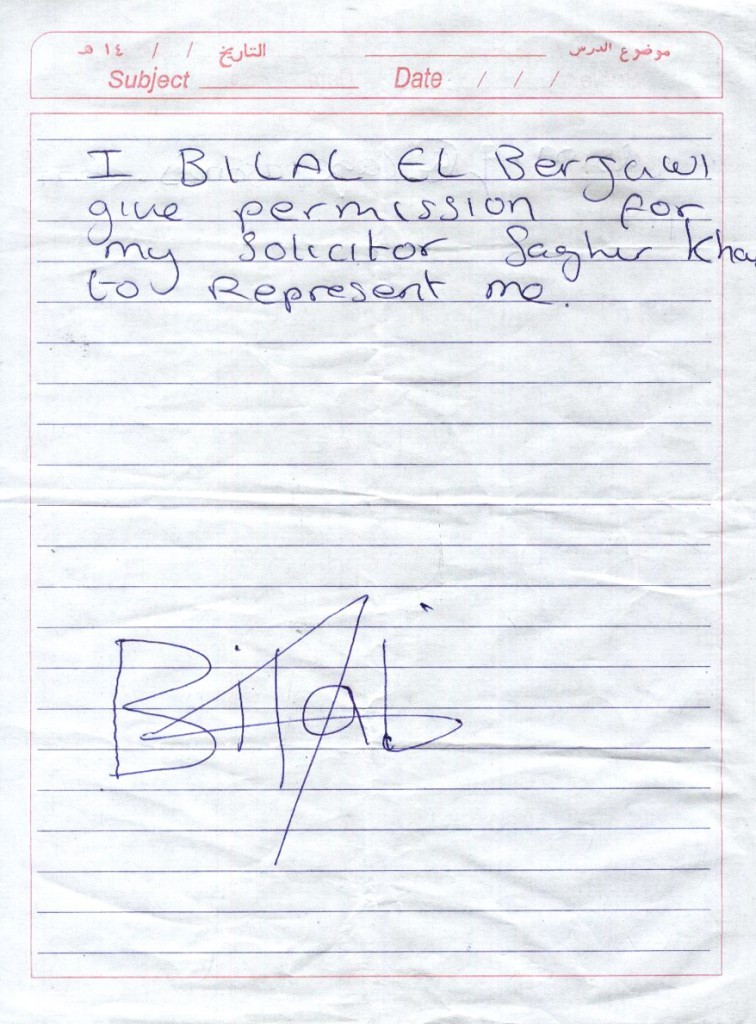 موضوع الدرس ________ التاريخ / / ١٤ هـ
Subject ________ Date / / /
I BILAL EL Berjawi
give permission for
my Solicitor Saghir Kha
to Represent me.
Bilal